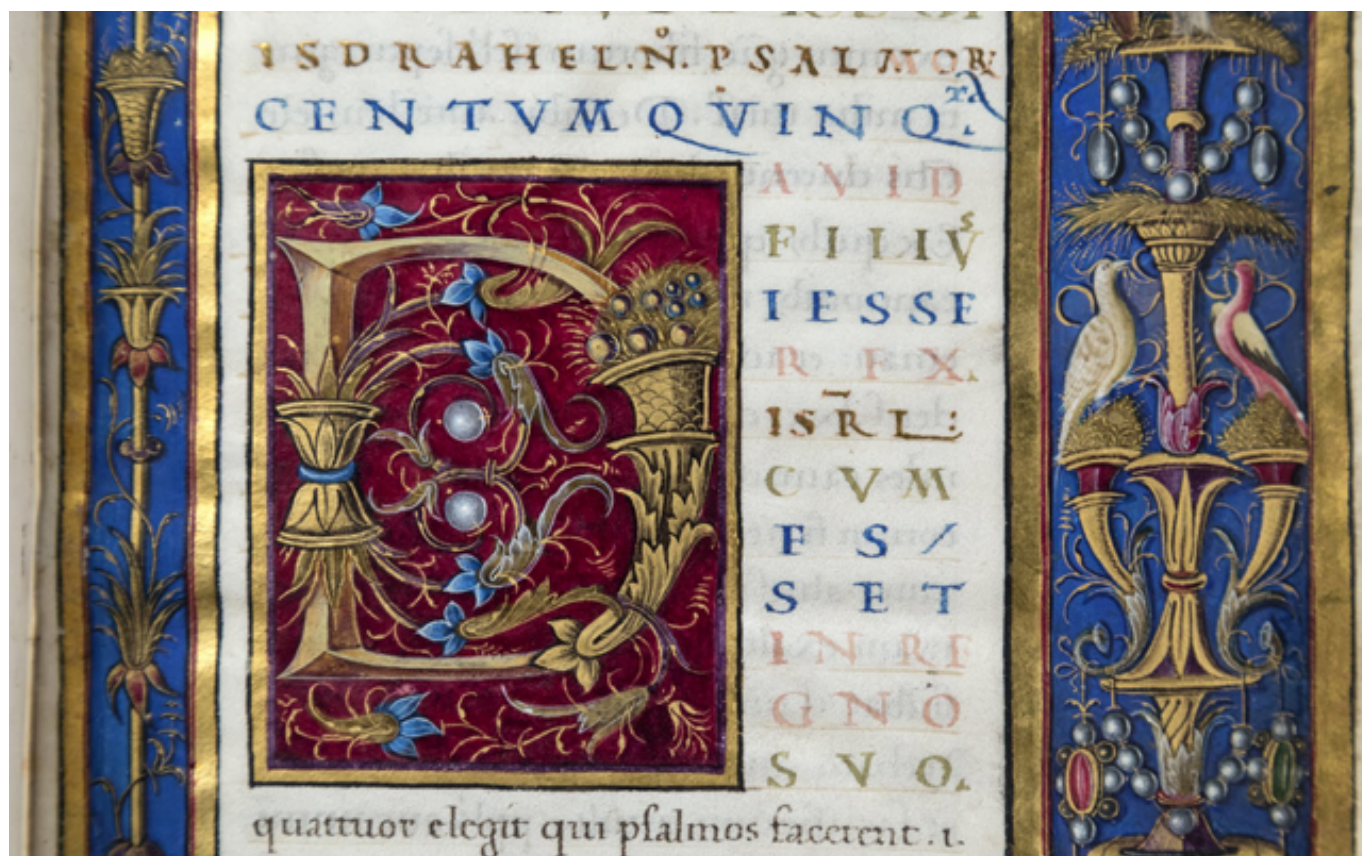 ISDRAHEL N̊. PSALMOR
CENTVM QVINQ.
D
AVID
FILIVS
IESSE
REX.
ISR̄L:
CVM
ES/
SET
IN RE
GNO
SVO.
quattuor elegit qui psalmos facerent .i.